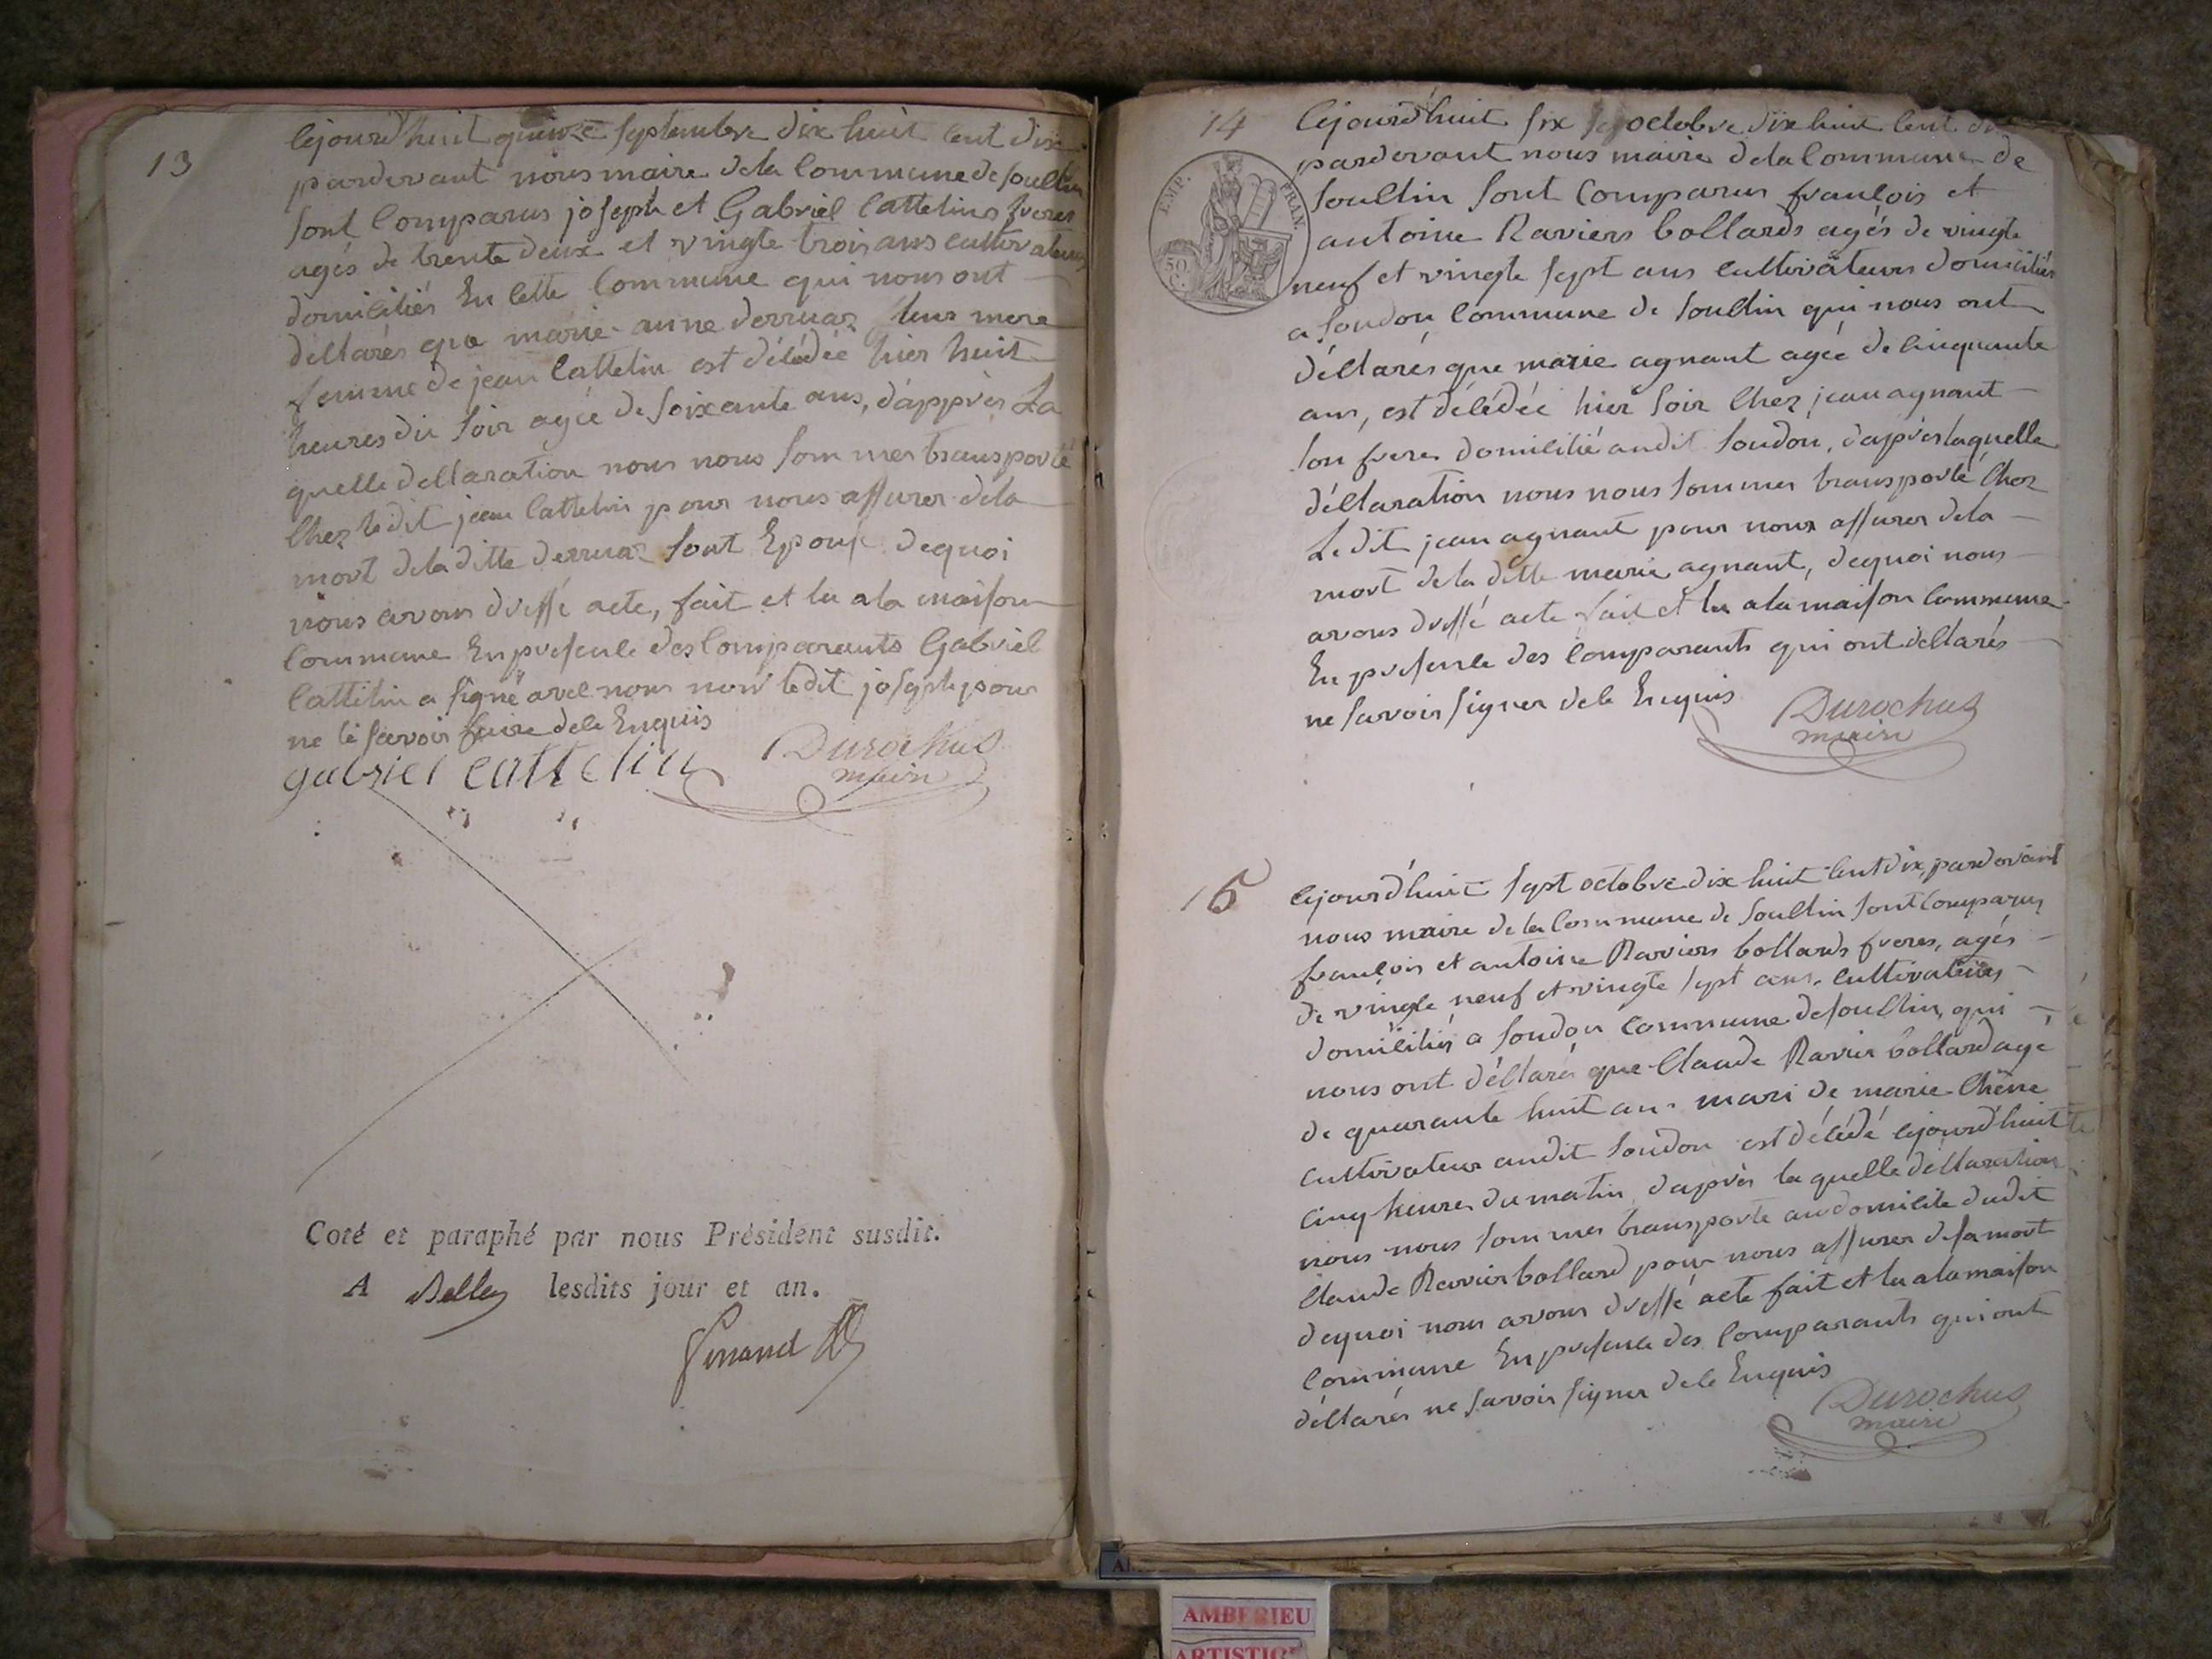 13
Cejourdhuit quinze septembre dix huit cent dix
pardevant nous maire dela Commune de souclin
sont Comparus joseph et Gabriel Cattelins freres
agés de trente deux et vingte trois ans cultivateurs
domiciliés En cette Commune qui nous ont
déclarés que marie anne derruaz leur mere
femme de jean Cattelin est décédée hier huit
heures du soir agée de soixante ans, d'apprès La
quelle déclaration nous nous sommes transporté
Chez le dit jean Cattelin pour nous assurer dela
mort dela ditte derruaz sont Epouse dequoi
nous avons dressé acte, fait et lu a la maison
Commune En presence des Comparants Gabriel
Cattelin a signé avec nous non ledit joseph pour
ne le savoir faire dele Enquis
gabriel cattelin Durochus
maire
Coté et paraphé par nous Président susdit.
A Belley lesdits jour et an.
14
Cejourd'huit six octobre dix huit cent
pardevant nous maire dela Commune de
Souclin sont Comparus françois et
EMP. FRAN.
antoine Raviers bollards agés de vingte
neuf et vingte sept ans cultivateurs domiciliés
50 C.
a soudon Commune de souclin qui nous ont
déclarés que marie agnant agée de cinquante
ans, est décédée hier soir Chez jean agnant
son frere domicilié audit soudon, d'après laquelle
déclaration nous nous sommes transporté Chez
Le dit jean agnant pour nous assurer dela
mort dela ditte marie agnant, dequoi nous
avons dressé acte fait et lu a la maison Commune
En presence des Comparants qui ont déclarés
ne savoir signer dele Enquis
Durochus
maire
15
Cejourd'huit sept octobre dix huit cent dix, pardevant
nous maire de la Commune de souclin sont Comparus
françois et antoine Raviers bollards freres, agés
de vingte neuf et vingte sept ans, cultivateurs
domiciliés a soudon Commune de souclin, qui
nous ont déclaré que Claude Ravier bollard agé
de quarante huit ans mari de marie Chêne
cultivateur audit soudon est décédé cejourd'huit
cinq heures du matin, d'après la quelle déclaration
nous nous sommes transporté au domicile dudit
Claude Ravier bollard pour nous assurer de sa mort
dequoi nous avons dressé acte fait et lu a la maison
Commune En presence des Comparants qui ont
déclarés ne savoir signer dele Enquis
Durochus
maire
AMBERIEU
ARTISTIQ